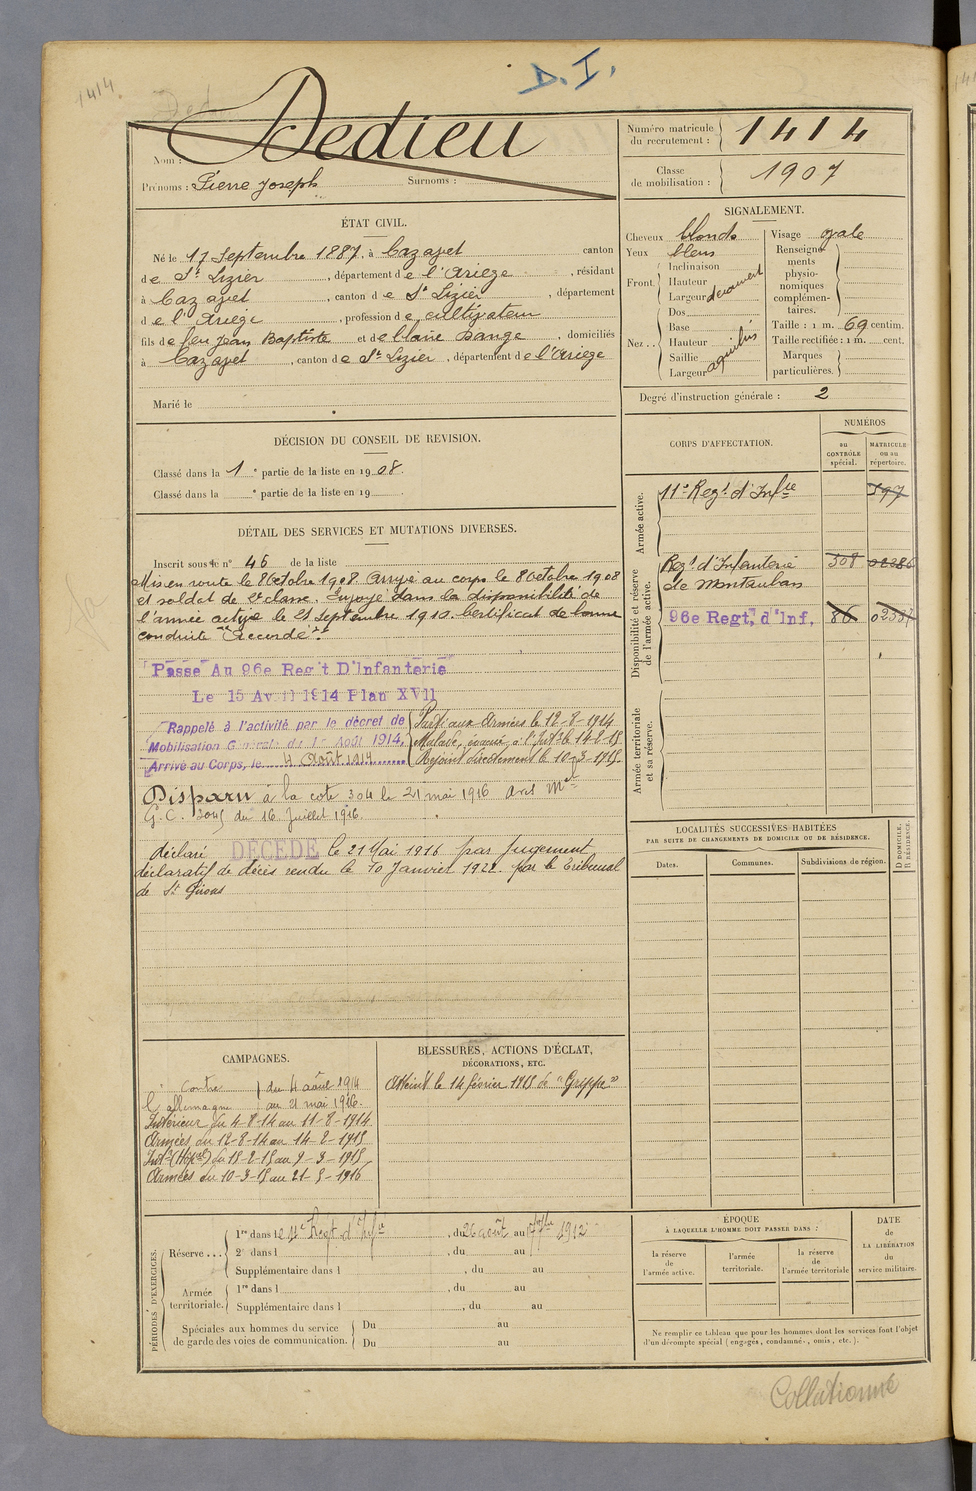 1414.
D. I.
Nom : Dedieu
Prénoms : Pierre Joseph Surnoms :
Numéro matricule du recrutement : 1414
Classe de mobilisation : 1907
ÉTAT CIVIL.
Né le 17 Septembre 1887, à Cazavet canton
de St Lizier, département de l'Ariège, résidant
à Cazavet, canton de St Lizier, département
de l'Ariège, profession de cultivateur
fils de feu Jean Baptiste et de Dange, domiciliés
à Cazavet, canton de St Lizier, département de l'Ariège
Marié le
SIGNALEMENT.
Cheveux blonds
Yeux bleus
Front.
Inclinaison
Hauteur
Largeur
Nez..
Dos
Base
Hauteur
Saillie
Largeur
aquilin
Visage ovale
Renseignements physionomiques complémentaires.
Taille : 1 m. 69 centim.
Taille rectifiée : 1 m. cent.
Marques particulières.
Degré d'instruction générale : 2
DÉCISION DU CONSEIL DE REVISION.
Classé dans la 1e partie de la liste en 1908.
Classé dans la e partie de la liste en 19
DÉTAIL DES SERVICES ET MUTATIONS DIVERSES.
Inscrit sous le n° 46 de la liste
Mis en route le 8 Octobre 1908. Arrivé au corps le 8 Octobre 1908
et soldat de 2e classe. Envoyé dans la disponibilité de
l'armée active le 25 Septembre 1910. Certificat de bonne
conduite "Accordé".
Passé Au 96e Reg't D'Infanterie
Le 15 Avril 1914 Plan XVII
Rappelé à l'activité par le décret de
Mobilisation Générale du 1er Août 1914.
Arrivé au Corps, le 4 Août 1914
Parti aux Armées le 12-8-1914
Malade, évacué à l'Intr le 14-2-15
Rejoint directement le 10-3-1915.
Disparu à la cote 304 le 21 mai 1916 avis Mel
G.C. du 16 Juillet 1916.
déclaré DÉCÉDÉ le 21 Mai 1916 par jugement
déclaratif de décès rendu le 10 Janvier 1922 par le Tribunal
de St Girons
CORPS D'AFFECTATION.
NUMÉROS
au CONTRÔLE spécial.
MATRICULE ou au répertoire.
Armée active.
11e Regt d'Infie
Disponibilité et réserve de l'armée active.
Regt d'Infanterie 508
de Montauban
96e Regt. d'Inf. 86
Armée territoriale et sa réserve.
LOCALITÉS SUCCESSIVES HABITÉES
PAR SUITE DE CHANGEMENTS DE DOMICILE OU DE RÉSIDENCE.
Dates.
Communes.
Subdivisions de région.
D DOMICILE.
R RÉSIDENCE.
CAMPAGNES.
Contre l'allemagne
du 4 août 1914
au 21 mai 1916.
Intérieur du 4-8-14 au 11-8-1914
Armées du 12-8-14 au 14-2-1915
Intr (Hopal) du 15-2-15 au 9-3-1915
Armées du 10-3-15 au 21-5-1916
BLESSURES, ACTIONS D'ÉCLAT,
DÉCORATIONS, ETC.
Atteint le 14 février 1915 de "Grippe"
PÉRIODES D'EXERCICES.
Réserve...
1re dans le Regt d'Infie, du 26 août au 1912
2e dans l , du au
Supplémentaire dans l , du au
Armée territoriale.
1re dans l , du au
Supplémentaire dans l , du au
Spéciales aux hommes du service de garde des voies de communication.
Du au
Du au
ÉPOQUE
À LAQUELLE L'HOMME DOIT PASSER DANS :
la réserve de l'armée active.
l'armée territoriale.
la réserve de l'armée territoriale
DATE de LA LIBÉRATION du service militaire.
Ne remplir ce tableau que pour les hommes dont les services font l'objet
d'un décompte spécial (engagés, condamnés, omis, etc.).
Collationné